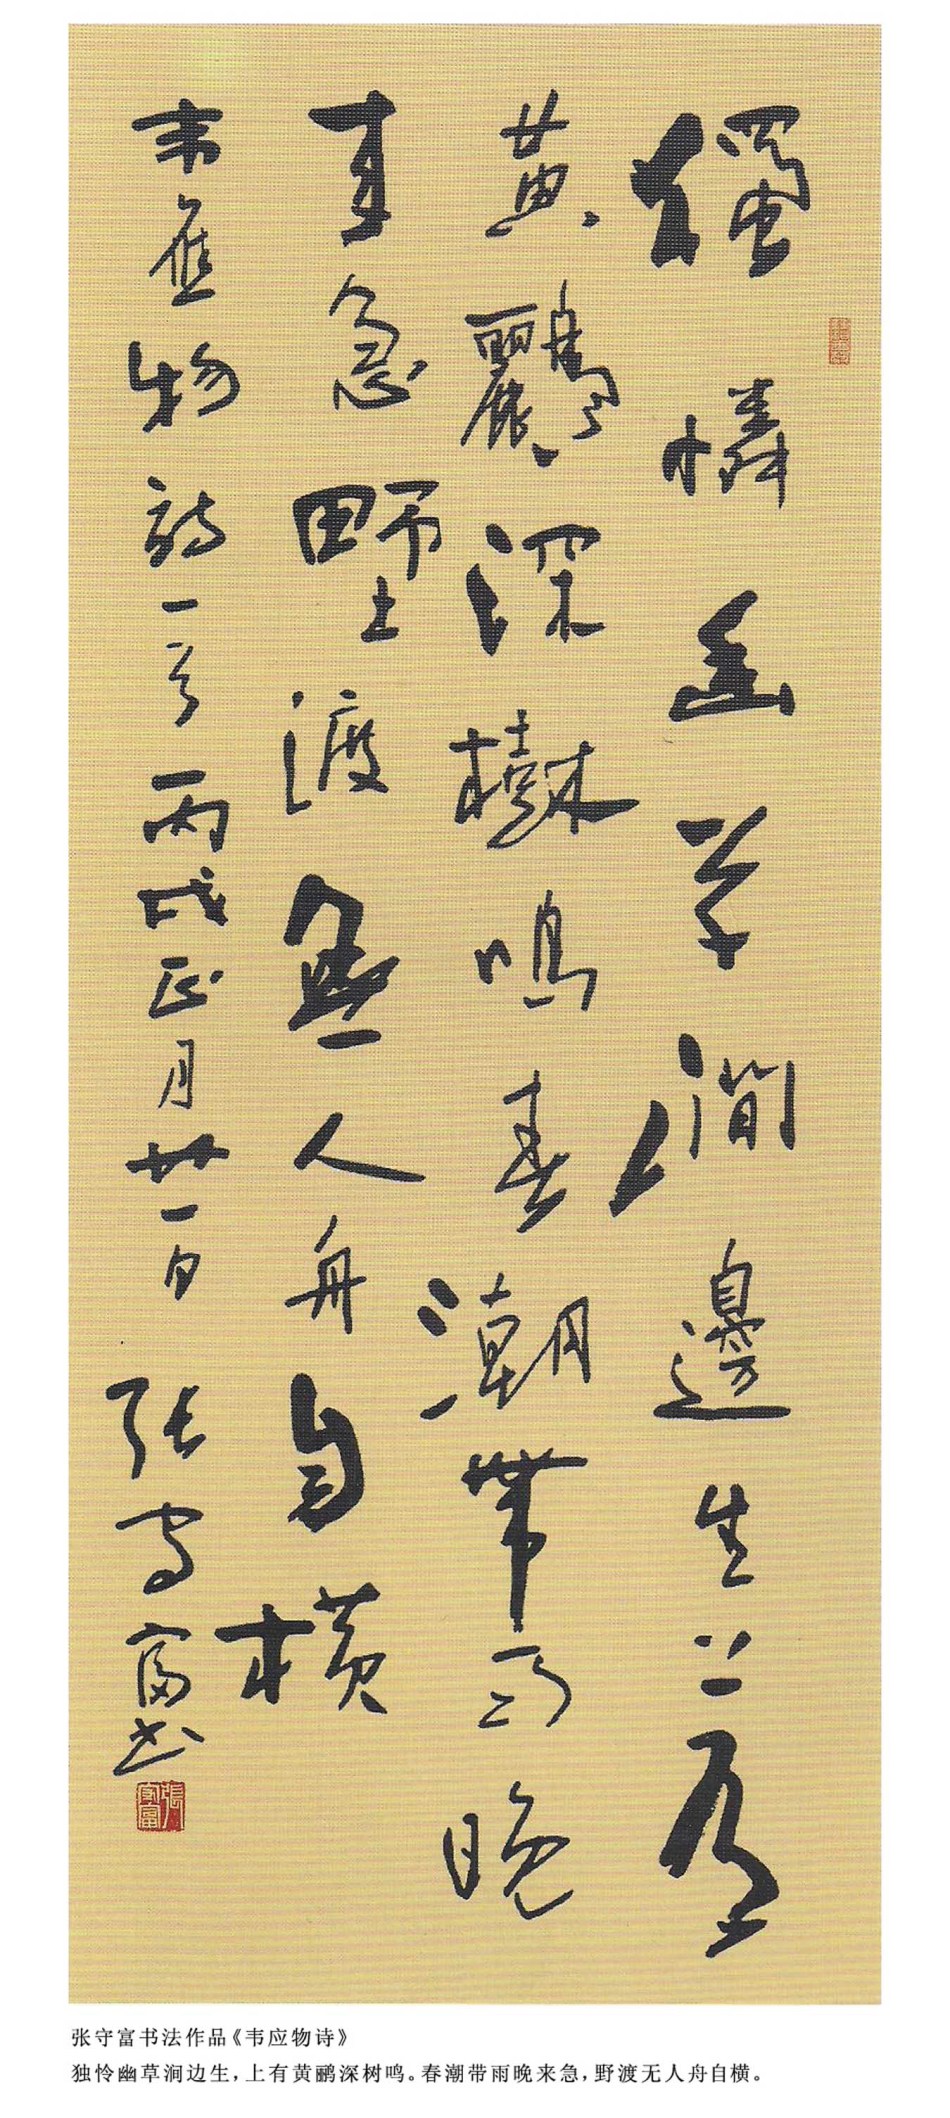 獨憐幽草澗邊生上有
黃鸝深樹鳴春潮帶雨晚
来急野渡無人舟自橫
韦應物詩一首丙戌正月廿一日張守富书
張守富
张守富书法作品《韦应物诗》
独怜幽草涧边生，上有黄鹂深树鸣。春潮带雨晚来急，野渡无人舟自横。